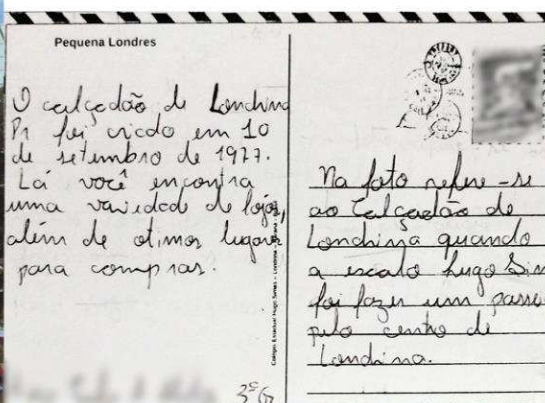 Pequena Londres
O calçadão de Londrina
Pr foi criado em 10
de setembro de 1977.
Lá você encontra
uma variedade de lojas,
além de otimos lugares
para compras.
3º G
Colégio Estadual Hugo Simas - Londrina -
Na foto refere-se
ao Calçadão de
Londrina quando
a escola Hugo Sim
foi fazer um passe
pelo centro de
Londrina.